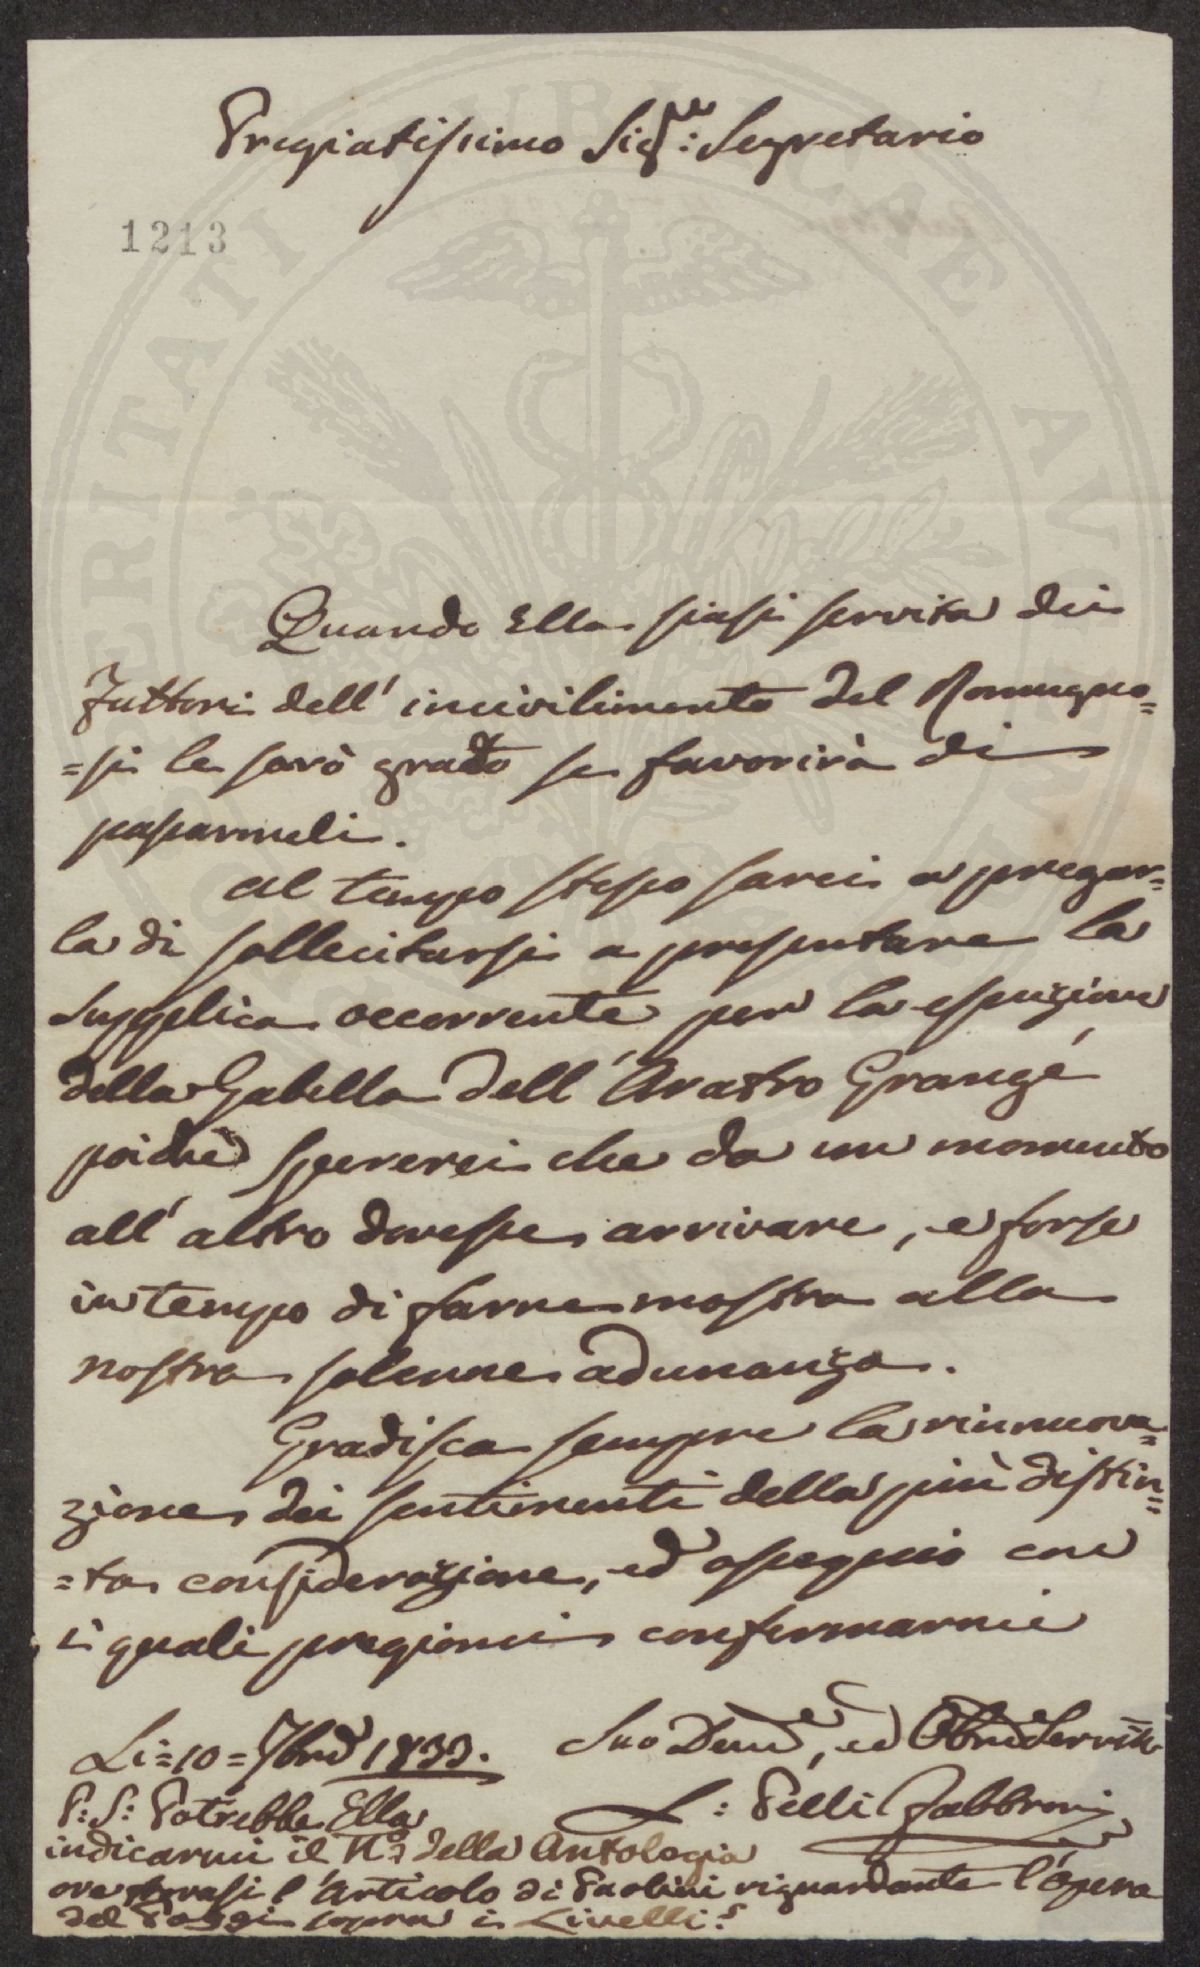 Pregiatissimo Sig.re: Segretario
1213
Quando Ella siasi servita dei
Fattori dell' incivilimento del Romagno=
=si le sarò grato se favorirà di
passarmeli.
Al tempo stesso sarei a pregar=
la di sollecitarsi a presentare la
Supplica occorrente per la esenzione
della Gabella dell' Aratro Grangé
poichè spererei che da un momento
all' altro dovesse arrivare, e forse
in tempo di farne mostra alla
nostra solenne adunanza.
Gradisca sempre la rinnuova=
zione dei sentimenti della più distin=
=ta considerazione, ed ossequio con
i quali pregiomi confermarmi
Suo Devmo, ed Obbmo Servitre
Li = 10 = 7bre 1833.
L: Pelli Fabbroni
P: S: Potrebbe Ella
indicarmi il No. della Antologia
ove trovasi l'Articolo di Paolini riguardante l'Opera
del Poggi sopra i Livelli?